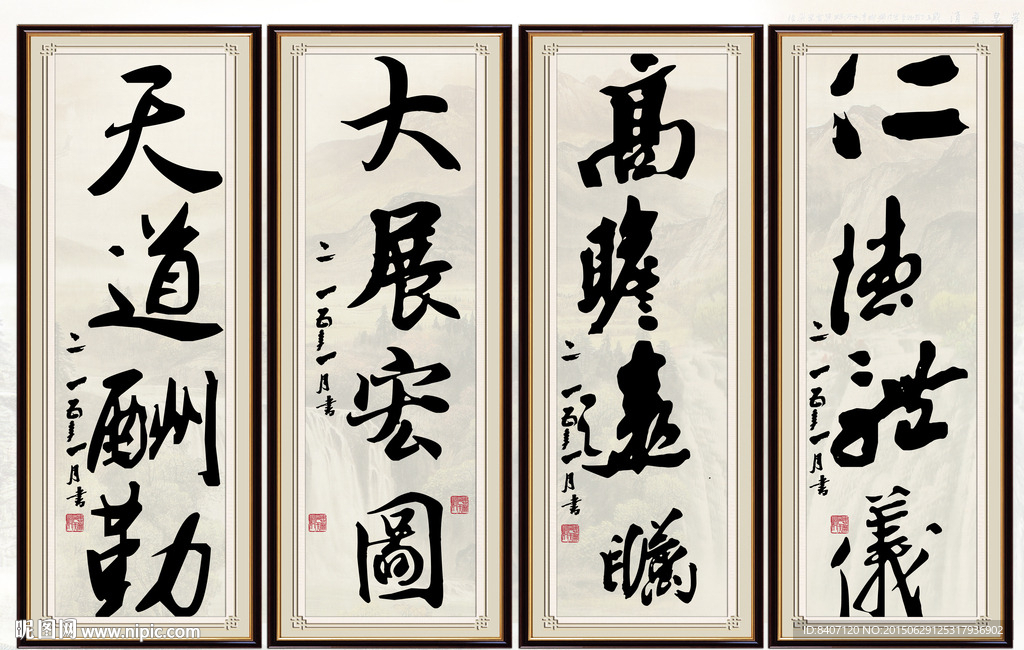 天道酬勤
二〇一五年一月書
大展宏圖
二〇一五年一月書
高瞻遠矚
二〇一五年一月書
仁德禮儀
二〇一五年一月書
昵图网 www.nipic.com
ID:8407120 NO:20150629125317936902